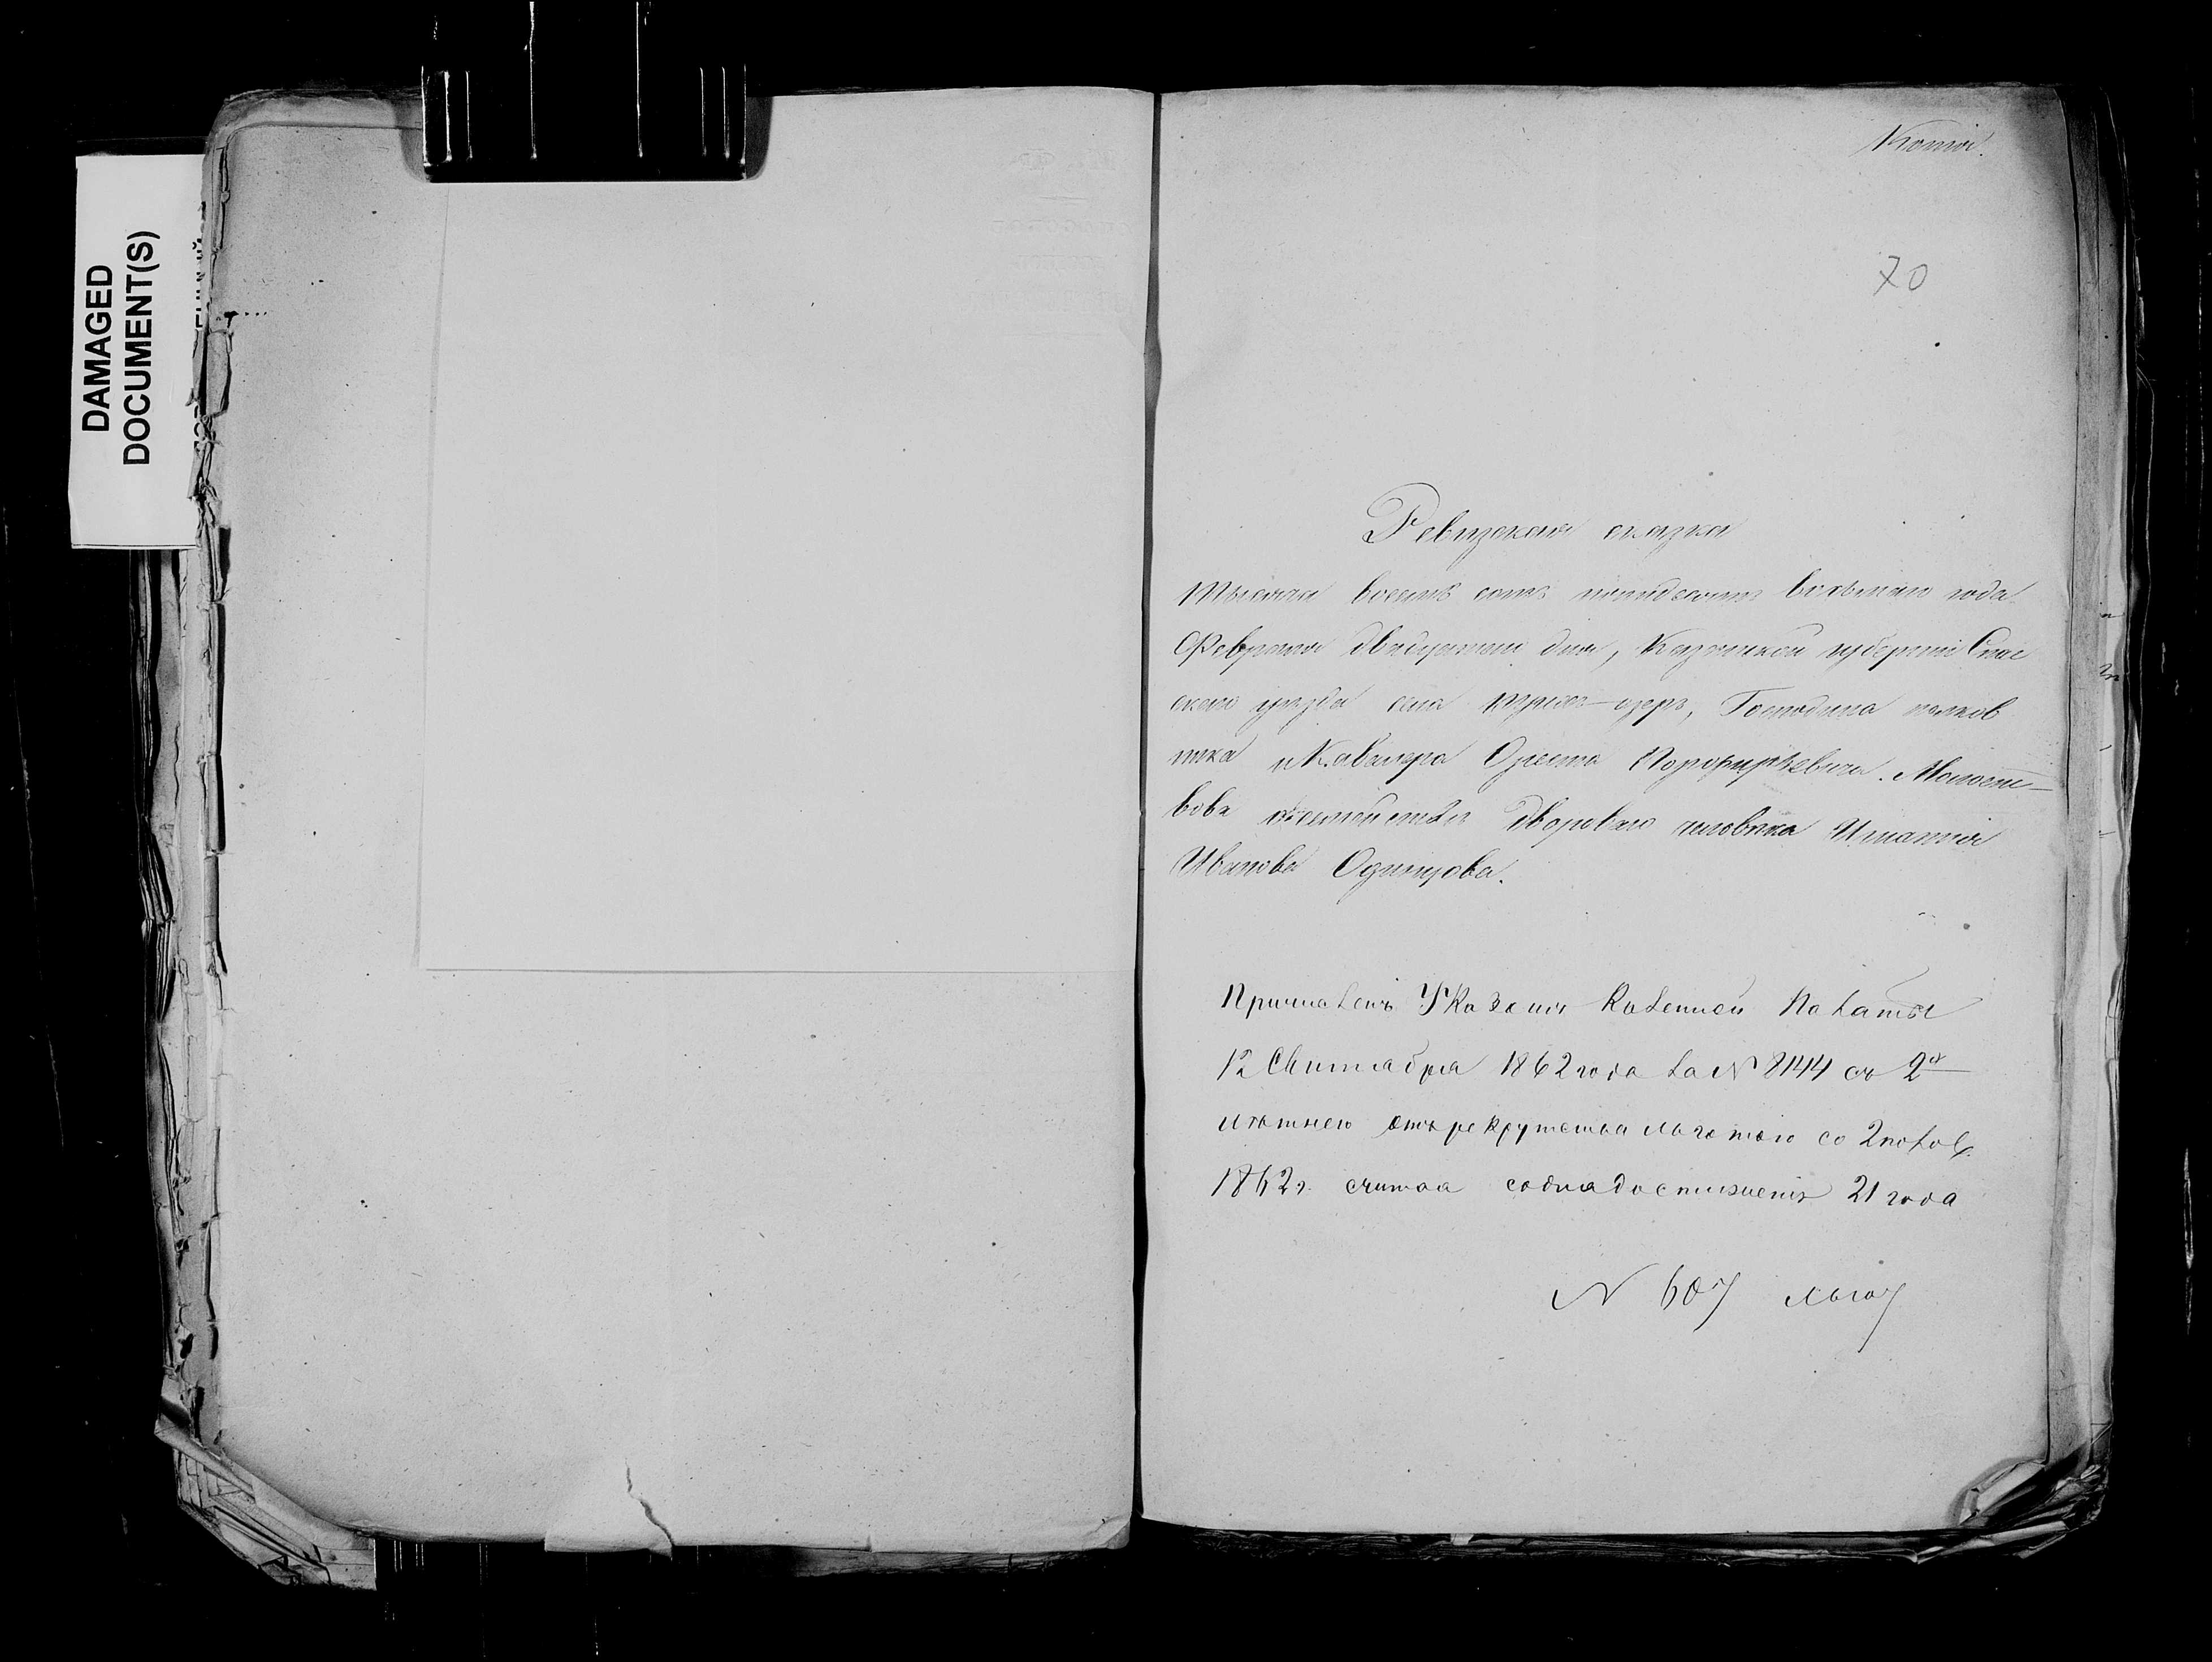 DAMAGED
DOCUMENT(S)
Копія.
70
Ревизская сказка
Тысяча восемь сотъ пятидесятъ восьмаго года
Февраля двадцатаго дня, Казанской губерніи Спас
скаго уѣзда села Трехъ-озеръ, Господина полков
ника и Кавалера Ореста Порфирьевича Молост-
вова двороваго человѣка Игнатія
Иванова Одинцова.
Причисленъ Указомъ Казенной Палаты
12 Сентября 1862 года за № 8144 съ 2х
лѣтнею отъ рекрутства льготою со 2 полов.
1862 г. считая со дня достиженія 21 года
№ 607